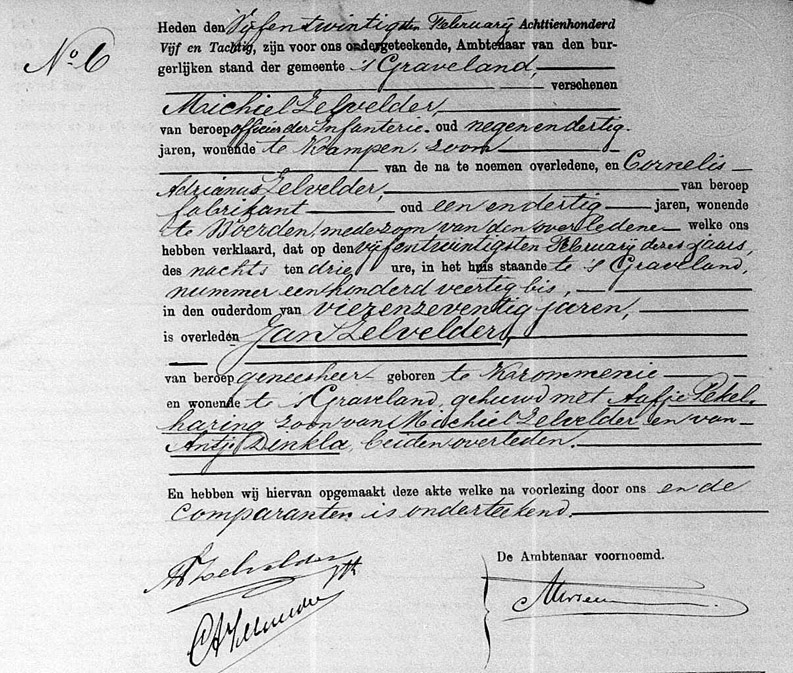 No. 6
Heden den Vijfentwintigsten February Achttienhonderd
Vijf en Tachtig, zijn voor ons ondergeteekende, Ambtenaar van den bur-
gerlijken stand der gemeente 's Graveland,
verschenen
Michiel Zelvelder,
van beroep officier der Infanterie oud negenendertig
jaren, wonende te Kampen, zoon
van de na te noemen overledene, en Cornelis
Adrianus Zelvelder, van beroep
fabrikant oud een en dertig jaren, wonende
te Woerden, mede zoon van den overledene welke ons
hebben verklaard, dat op den vijfentwintigsten February dezes jaars,
des nachts ten drie ure, in het huis staande te 's Graveland,
nummer een honderd veertig bis,
in den ouderdom van vierenzeventig jaren,
is overleden Jan Zelvelder,
van beroep geneesheer geboren te Krommenie
en wonende te 's Graveland, gehuwd met Aafje Pekel-
haring zoon van Michiel Zelvelder en van
Antje Dinkla, beiden overleden.
En hebben wij hiervan opgemaakt deze akte welke na voorlezing door ons en de
comparanten is onderteekend.
De Ambtenaar voornoemd.
Zelvelder